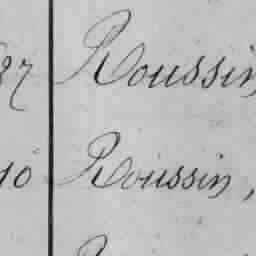 87 Roussin
10 Roussin,